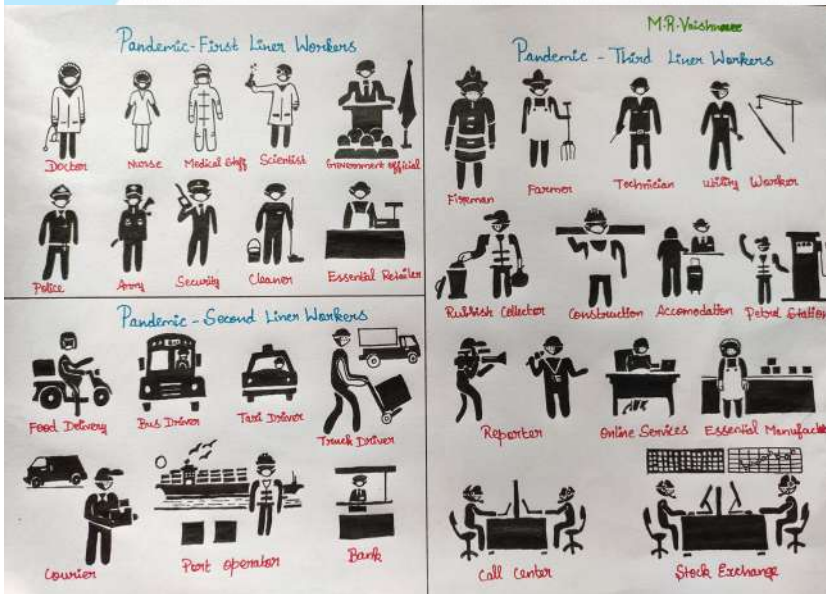 Pandemic-First Liner Workers
Doctor
Nurse
Medical Staff
Scientist
Government Official
Police
Army
Security
Cleaner
Essential Retailer
Pandemic - Second Liner Workers
Food Delivery
Bus Driver
Taxi Driver
Truck Driver
Courier
Port Operator
Bank
M.R.Vaishnavee
Pandemic - Third Liner Workers
Fireman
Farmer
Technician
Utility Worker
Rubbish Collector
Construction
Accomodation
Petrol Station
Reporter
Online Services
Essential Manufact
Call Center
Stock Exchange